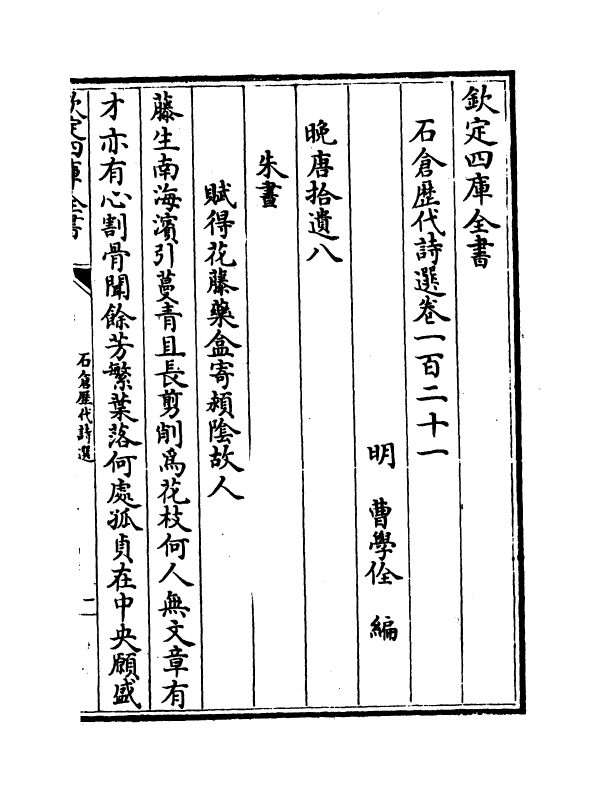 欽定四庫全書
石倉歴代詩選卷一百二十一
明　曹學佺　編
晚唐拾遺八
朱晝
賦得花藤藥盒寄潁陰故人
藤生南海濱引蔓青且長剪削為花枝何人無文章有
才亦有心割骨聞餘芳繁葉落何處孤貞在中央願盛
欽定四庫全書
石倉歴代詩選